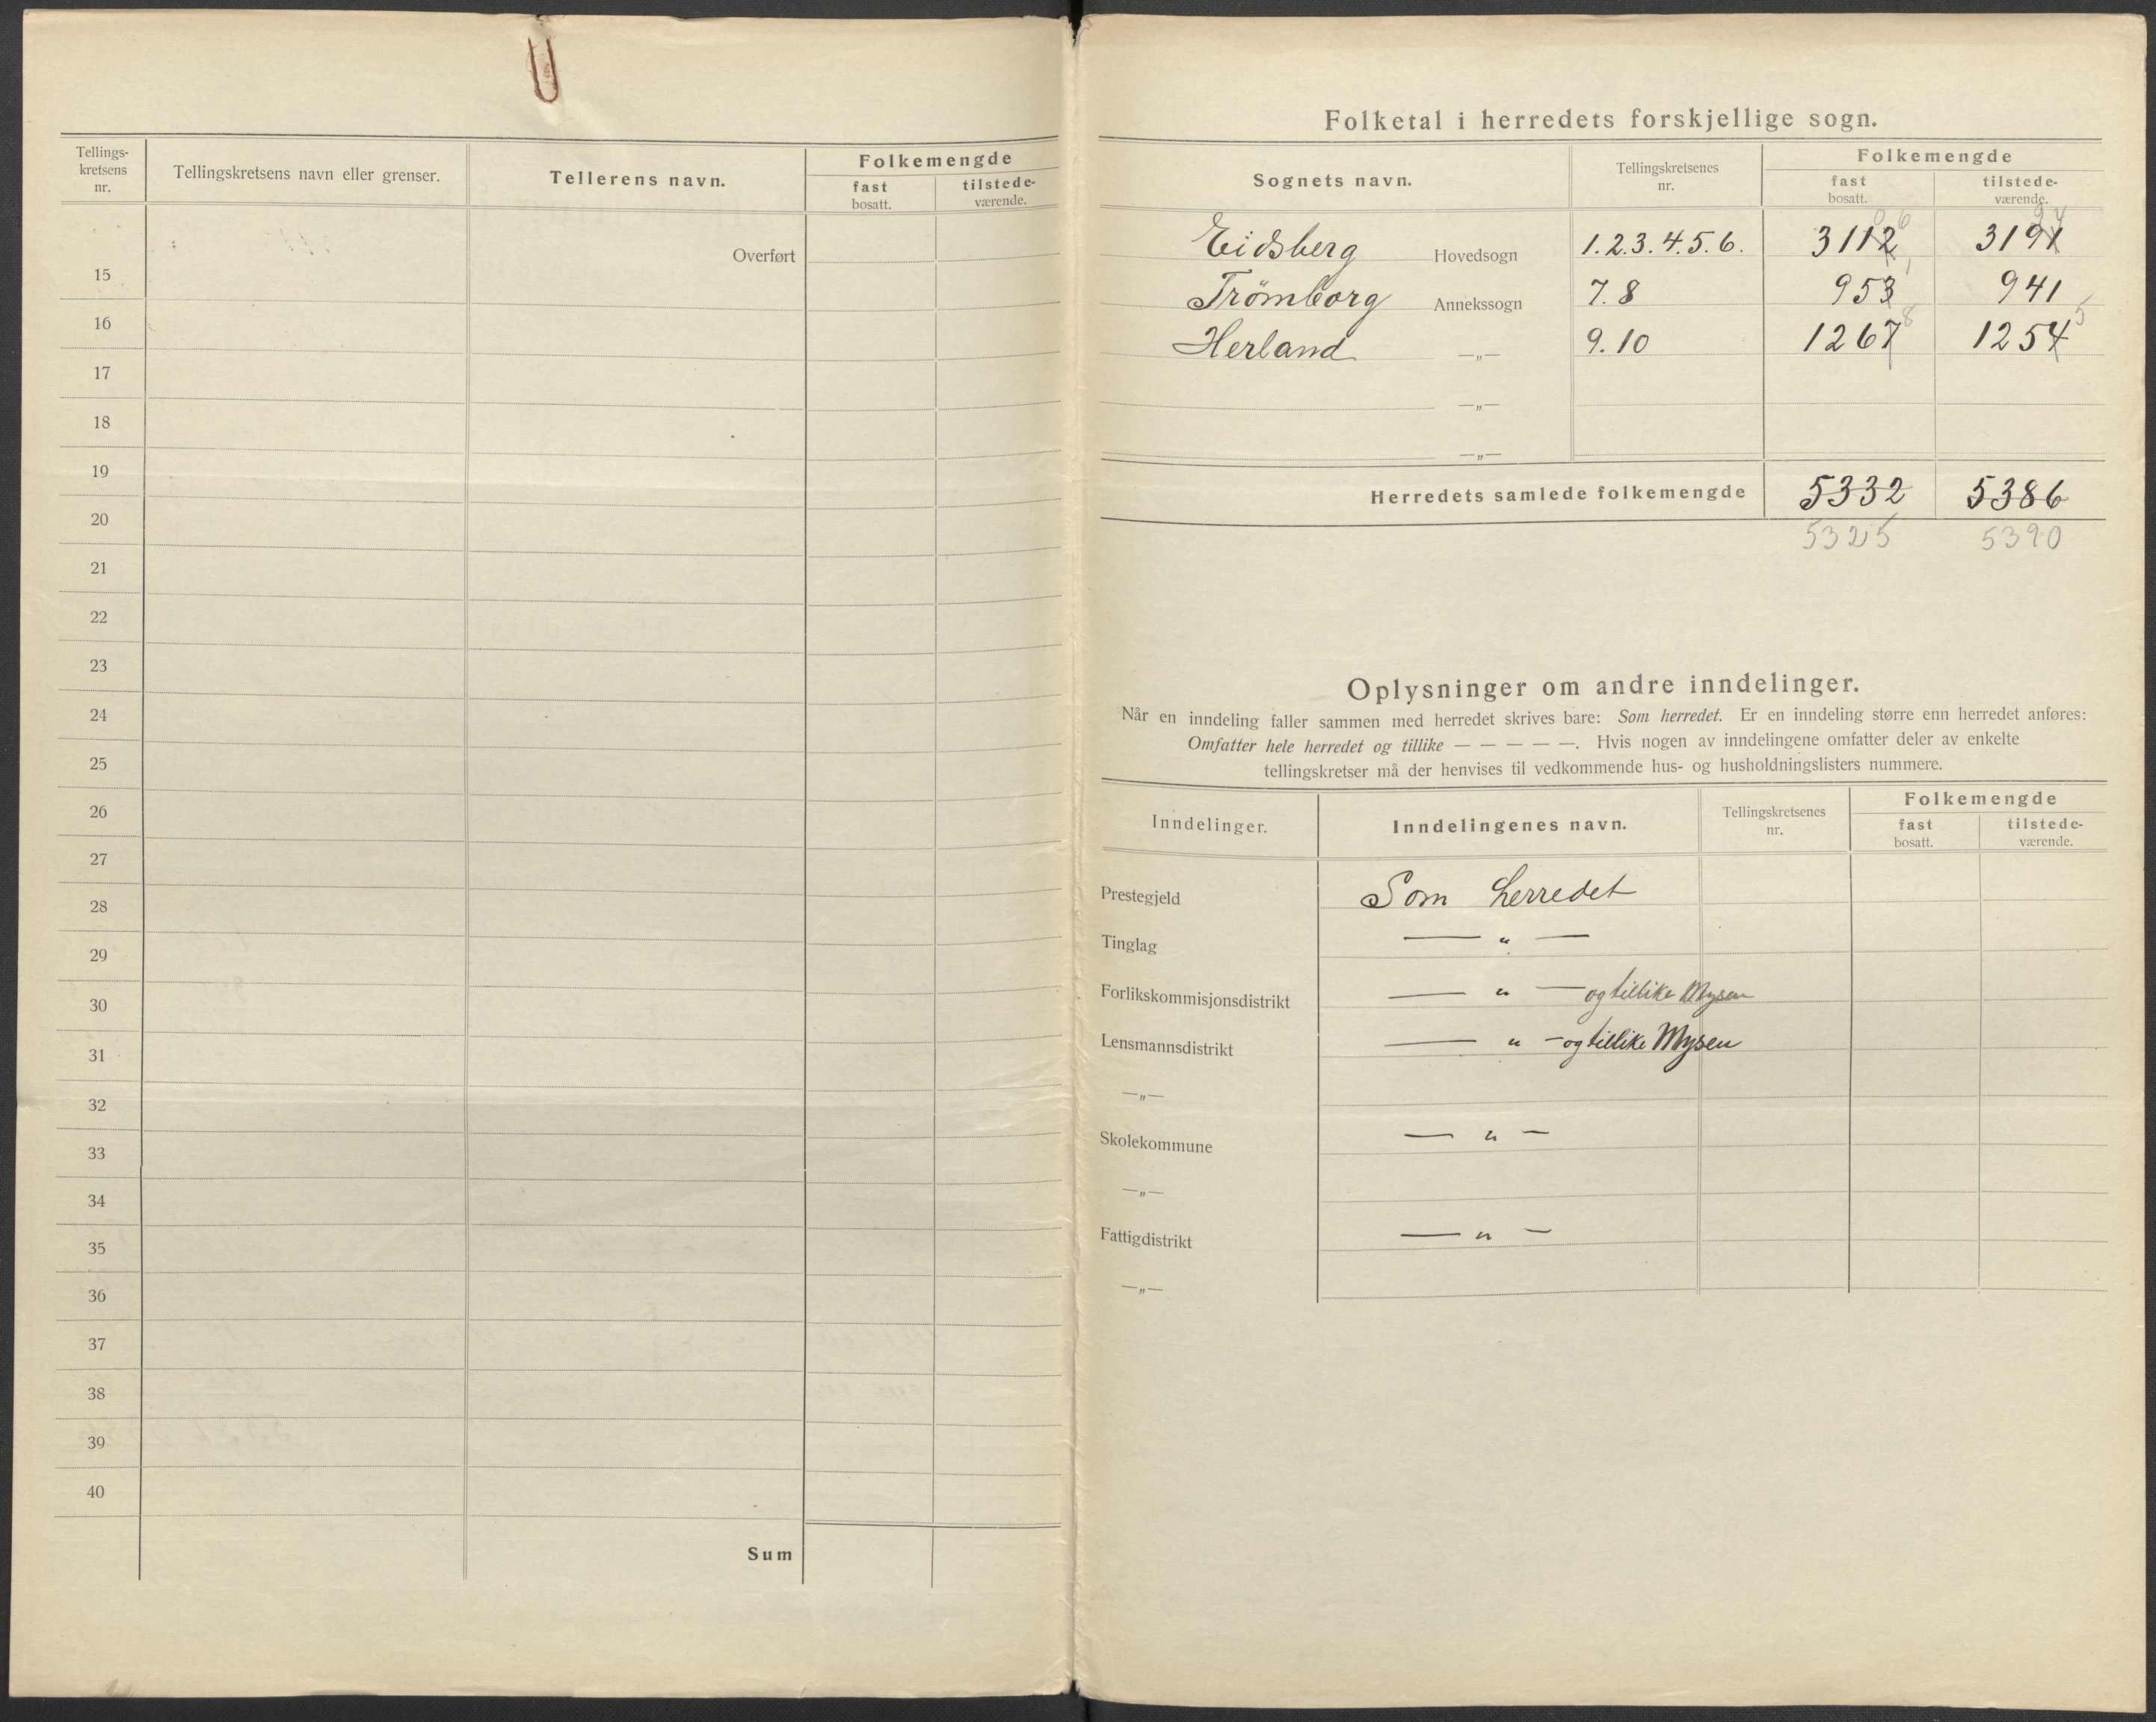 Tellings-
kretsens
nr.
Tellingskretsens navn eller grenser.
Tellerens navn.
Folkemengde
fast
bosatt.
tilstede-
værende.
Overført
15
16
17
18
19
20
21
22
23
24
25
26
27
28
29
30
31
32
33
34
35
36
37
38
39
40
Sum
Folketal i herredets forskjellige sogn.
Sognets navn.
Tellingskretsenes
nr.
Folkemengde
fast
bosatt.
tilstede-
værende.
Eidsberg Hovedsogn 1.2.3.4.5.6. 3112 3191
Trömborg Annekssogn 7.8 953 941
Herland —„— 9.10 1267 8 1254 5
—„—
—„—
Herredets samlede folkemengde 5332 5386
5325 5390
Oplysninger om andre inndelinger.
Når en inndeling faller sammen med herredet skrives bare: Som herredet. Er en inndeling større enn herredet anføres:
Omfatter hele herredet og tillike — — — — —. Hvis nogen av inndelingene omfatter deler av enkelte
tellingskretser må der henvises til vedkommende hus- og husholdningslisters nummere.
Inndelinger.
Inndelingenes navn.
Tellingskretsenes
nr.
Folkemengde
fast
bosatt.
tilstede-
værende.
Prestegjeld Som herredet
Tinglag — „ —
Forlikskommisjonsdistrikt — „ — og tillike Mysen
Lensmannsdistrikt — „ — og tillike Mysen
—„—
Skolekommune — „ —
—„—
Fattigdistrikt — „ —
—„—